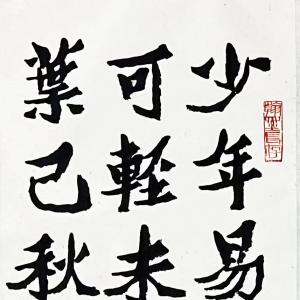 少年易
可輕未
葉已秋